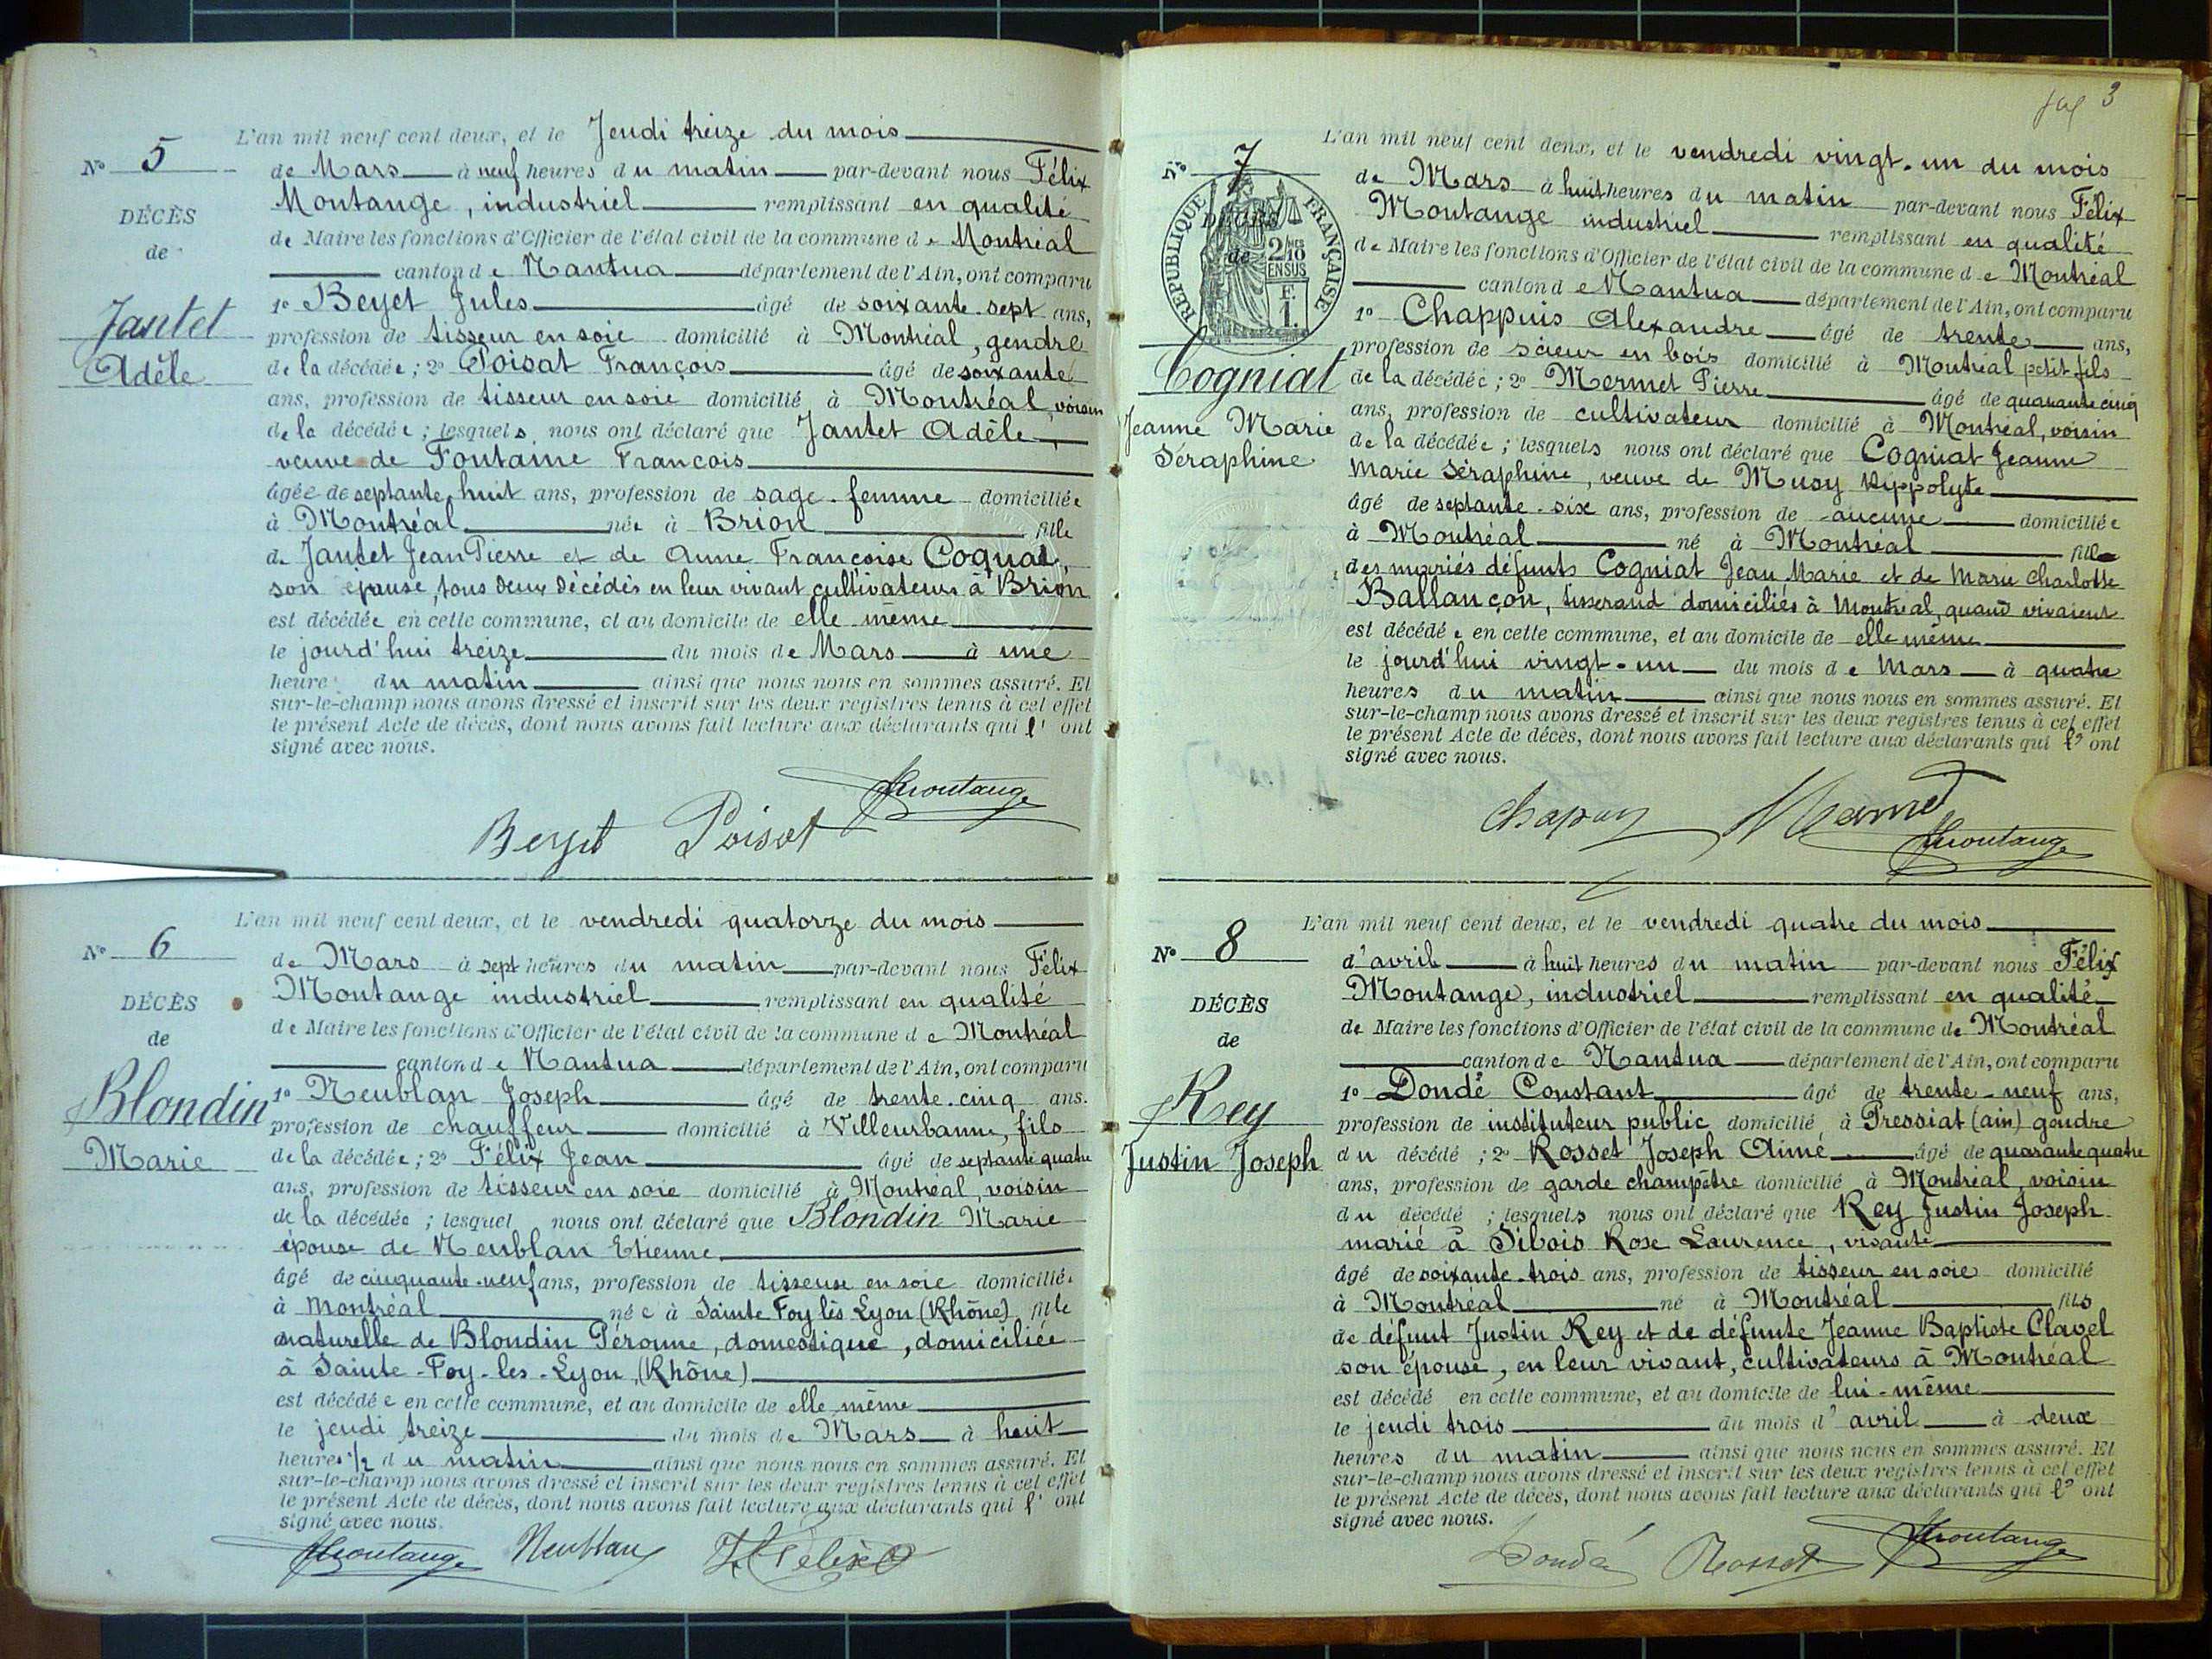 L'an mil neuf cent deux, et le Jeudi treize du mois
N° 5
de Mars à neuf heures du matin par-devant nous Félix
Montange, industriel remplissant en qualité
DÉCÈS
de Maire les fonctions d'Officier de l'état civil de la commune de Montréal
de
canton de Nantua département de l'Ain, ont comparu
1° Beyet Jules âgé de soixante-sept ans,
Jantet
profession de tisseur en soie domicilié à Montréal, gendre
Adèle
de la décédée; 2° Poisat François âgé de soixante
ans, profession de tisseur en soie domicilié à Montréal, voisin
de la décédée; lesquels nous ont déclaré que Jantet Adèle
veuve de Fontaine François
âgée de septante huit ans, profession de sage-femme domiciliée
à Montréal née à Brion fille
de Jantet Jean Pierre et de Anne Françoise Cognat,
son épouse, tous deux décédés en leur vivant cultivateurs à Brion
est décédée en cette commune, et au domicile de elle même
le jourd'hui treize du mois de Mars à une
heure du matin ainsi que nous nous en sommes assuré. Et
sur-le-champ nous avons dressé et inscrit sur les deux registres tenus à cet effet
le présent Acte de décès, dont nous avons fait lecture aux déclarants qui l'ont
signé avec nous.
Beyet Poisat FMontange
L'an mil neuf cent deux, et le vendredi quatorze du mois
N° 6
de Mars à sept heures du matin par-devant nous Félix
Montange industriel remplissant en qualité
DÉCÈS
de Maire les fonctions d'Officier de l'état civil de la commune de Montréal
de
canton de Nantua département de l'Ain, ont comparu
Blondin
1° Neublan Joseph âgé de trente-cinq ans.
profession de chauffeur domicilié à Villeurbanne, fils
Marie
de la décédée; 2° Félix Jean âgé de septante quatre
ans, profession de tisseur en soie domicilié à Montréal, voisin
de la décédée; lesquel nous ont déclaré que Blondin Marie
épouse de Neublan Etienne
âgé de cinquante-neuf ans, profession de tisseuse en soie domiciliée
à Montréal née à Sainte Foy lès Lyon (Rhône) fille
naturelle de Blondin Péronne, domestique, domiciliée
à Sainte-Foy-les-Lyon, (Rhône)
est décédée en cette commune, et au domicile de elle même
le jeudi treize du mois de Mars à huit
heures 1/2 du matin ainsi que nous nous en sommes assuré. Et
sur-le-champ nous avons dressé et inscrit sur les deux registres tenus à cet effet
le présent Acte de décès, dont nous avons fait lecture aux déclarants qui l'ont
signé avec nous.
FMontange Neublan J Félix
3
L'an mil neuf cent deux, et le vendredi vingt-un du mois
N° 7
de Mars à huit heures du matin par-devant nous Félix
Montange industriel remplissant en qualité
DÉCÈS
de
RÉPUBLIQUE FRANÇAISE
2/10 EN SUS
F. 1.
de Maire les fonctions d'Officier de l'état civil de la commune de Montréal
canton de Nantua département de l'Ain, ont comparu
1° Chappuis Alexandre âgé de trente ans,
profession de scieur en bois domicilié à Montréal petit fils
Cogniat
de la décédée; 2° Mermet Pierre âgé de quarante cinq
Jeanne Marie
ans, profession de cultivateur domicilié à Montréal, voisin
Séraphine
de la décédée; lesquels nous ont déclaré que Cogniat Jeanne
Marie Séraphine, veuve de Musy Hippolyte
âgé de septante-six ans, profession de aucune domiciliée
à Montréal né à Montréal fille
des mariés défunts Cogniat Jean Marie et de Marie Charlotte
Ballançon, tisserand domiciliés à Montréal, quand vivaient
est décédée en cette commune, et au domicile de elle même
le jourd'hui vingt-un du mois de Mars à quatre
heures du matin ainsi que nous nous en sommes assuré. Et
sur-le-champ nous avons dressé et inscrit sur les deux registres tenus à cet effet
le présent Acte de décès, dont nous avons fait lecture aux déclarants qui l'ont
signé avec nous.
Chapuy Mermet FMontange
L'an mil neuf cent deux, et le vendredi quatre du mois
N° 8
d'avril à huit heures du matin par-devant nous Félix
Montange, industriel remplissant en qualité
DÉCÈS
de Maire les fonctions d'Officier de l'état civil de la commune de Montréal
de
canton de Nantua département de l'Ain, ont comparu
Rey
1° Dondé Constant âgé de trente-neuf ans,
profession de instituteur public domicilié à Pressiat (ain) gendre
Justin Joseph
du décédé; 2° Rosset Joseph Aimé âgé de quarante quatre
ans, profession de garde champêtre domicilié à Montréal, voisin
du décédé; lesquels nous ont déclaré que Rey Justin Joseph
marié à Sibois Rose Laurence, vivante
âgé de soixante-trois ans, profession de tisseur en soie domicilié
à Montréal né à Montréal fils
de défunt Justin Rey et de défunte Jeanne Baptiste Clavel
son épouse, en leur vivant, cultivateurs à Montréal
est décédé en cette commune, et au domicile de lui-même
le jeudi trois du mois d'avril à deux
heures du matin ainsi que nous nous en sommes assuré. Et
sur-le-champ nous avons dressé et inscrit sur les deux registres tenus à cet effet
le présent Acte de décès, dont nous avons fait lecture aux déclarants qui l'ont
signé avec nous.
Dondé Rosset FMontange